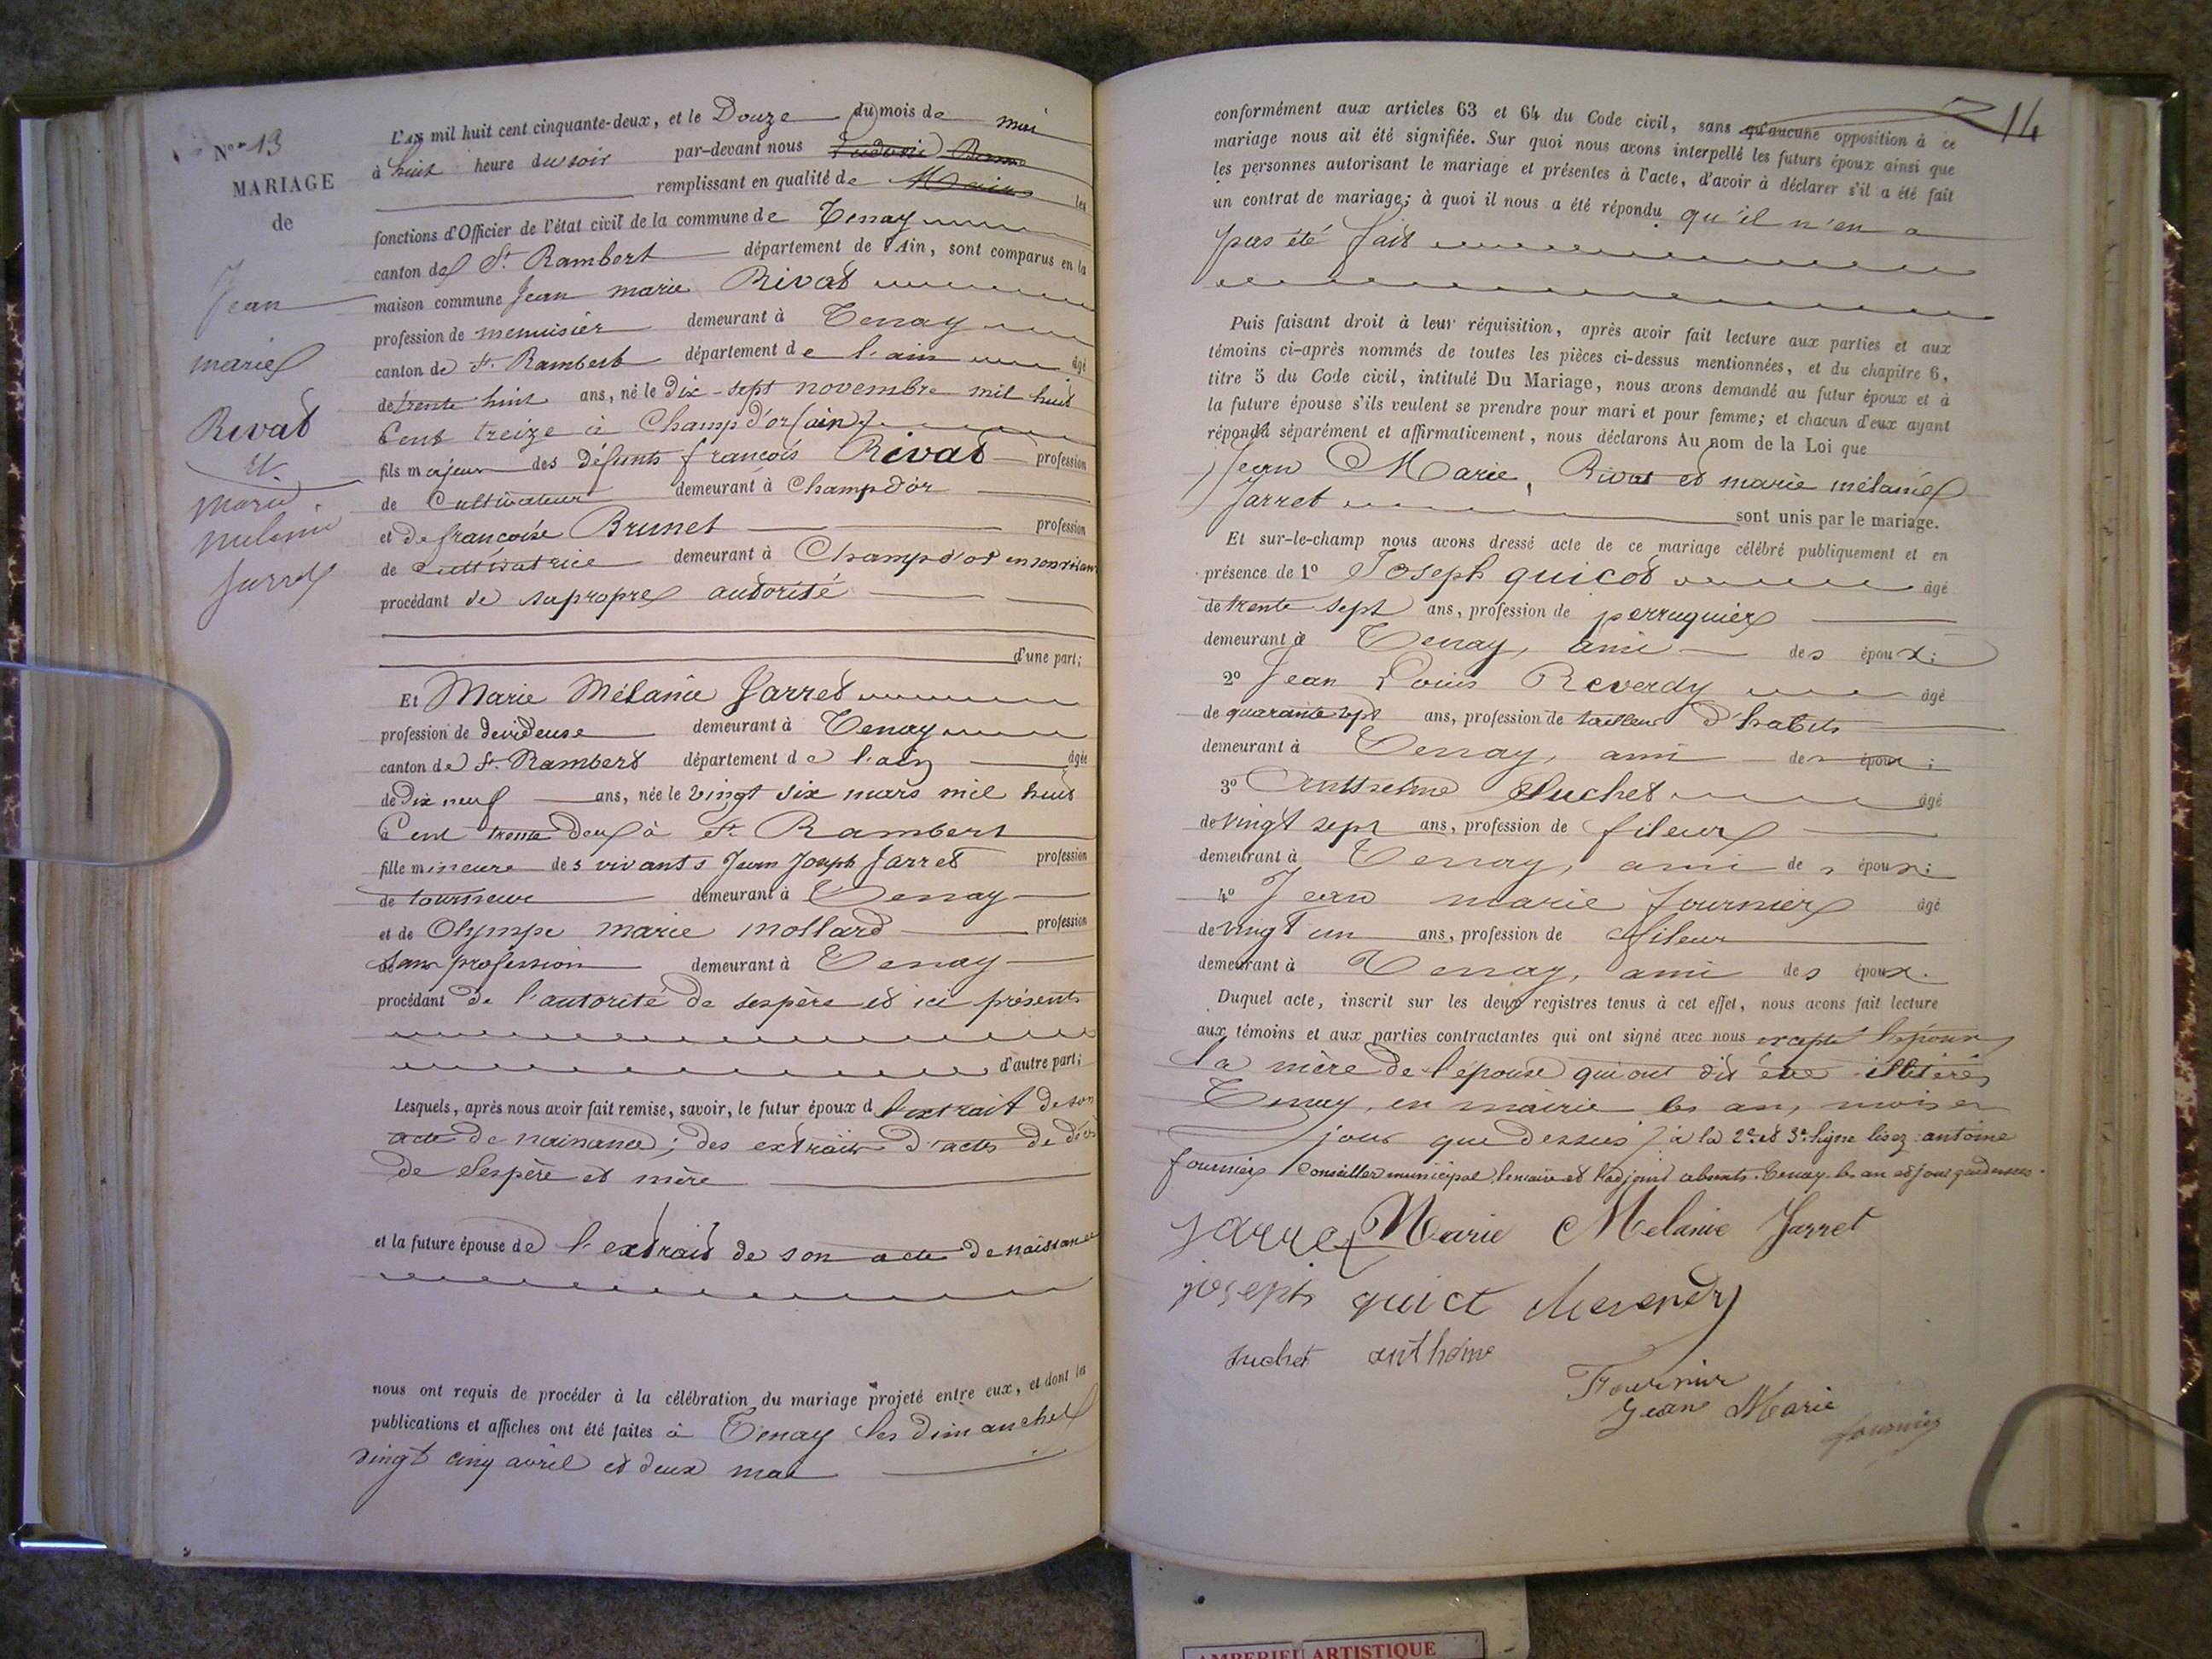 N° 13
MARIAGE
de
Jean
marie
Rivat
et
Marie
melanie
Jarret
L'AN mil huit cent cinquante-deux, et le Douze du mois de mai
à huit heure du soir par-devant nous
remplissant en qualité de Maire les
fonctions d'Officier de l'état civil de la commune de Tenay
canton de St. Rambert département de l'Ain, sont comparus en la
maison commune Jean marie Rivat
profession de menuisier demeurant à Tenay
canton de St. Rambert département de l'ain âgé
de trente huit ans, né le Dix-sept novembre mil huit
Cent treize à Champd'or (ain)
fils majeur des défunts françois Rivat profession
de Cultivateur demeurant à Champd'or
et de françoise Brunet profession
de Cultivatrice demeurant à Champd'or
procédant de sa propre autorité
d'une part;
Et Marie Mélanie Jarret
profession de devideuse demeurant à Tenay
canton de St. Rambert département de l'ain âgée
de Dix neuf ans, née le vingt six mars mil huit
Cent trente Deux à St. Rambert
fille mineure des vivants Jean Joseph Jarret profession
de tourneur demeurant à Tenay
et de Olympe marie mollard profession
sans profession demeurant à Tenay
procédant de l'autorité de ses père et ici présents
d'autre part;
Lesquels, après nous avoir fait remise, savoir, le futur époux d l'extrait de son
acte de naissance; des extraits d'actes de décès
de ses père et mère
et la future épouse de l'extrait de son acte de naissance
nous ont requis de procéder à la célébration du mariage projeté entre eux, et dont les
publications et affiches ont été faites à Tenay les dimanches
vingt cinq avril et deux mai
14
conformément aux articles 63 et 64 du Code civil, sans qu'aucune opposition à ce
mariage nous ait été signifiée. Sur quoi nous avons interpellé les futurs époux ainsi que
les personnes autorisant le mariage et présentes à l'acte, d'avoir à déclarer s'il a été fait
un contrat de mariage; à quoi il nous a été répondu qu'il n'en a
pas été fait
Puis faisant droit à leur réquisition, après avoir fait lecture aux parties et aux
témoins ci-après nommés de toutes les pièces ci-dessus mentionnées, et du chapitre 6,
titre 5 du Code civil, intitulé Du Mariage, nous avons demandé au futur époux et à
la future épouse s'ils veulent se prendre pour mari et pour femme; et chacun d'eux ayant
répondu séparément et affirmativement, nous déclarons Au nom de la Loi que
Jean Marie, Rivat et marie mélanie
Jarret sont unis par le mariage.
Et sur-le-champ nous avons dressé acte de ce mariage célébré publiquement et en
présence de 1° Joseph quicot âgé
de trente sept ans, profession de perruquier
demeurant à Tenay, ami des époux;
2° Jean Louis Reverdy âgé
de quarante sept ans, profession de tailleur d'habits
demeurant à Tenay, ami des époux;
3° Anthelme Suchet âgé
de vingt sept ans, profession de fileur
demeurant à Tenay, ami des époux;
4° Jean marie fournier âgé
de vingt un ans, profession de fileur
demeurant à Tenay, ami des époux.
Duquel acte, inscrit sur les deux registres tenus à cet effet, nous avons fait lecture
aux témoins et aux parties contractantes qui ont signé avec nous excepté l'époux,
la mère de l'épouse qui ont dit être illitérés
Tenay, en mairie les an, mois et
jour que dessus à la 2e et 3e ligne lisez: antoine
fournier Conseiller municipal le maire et l'adjoint absents. Tenay les an et jour que dessus.
jarret Marie Melanie Jarret
joseph quict Reverdy
suchet anthelme
Fournier
Jean Marie
fournier
AMBERIEU ARTISTIQUE